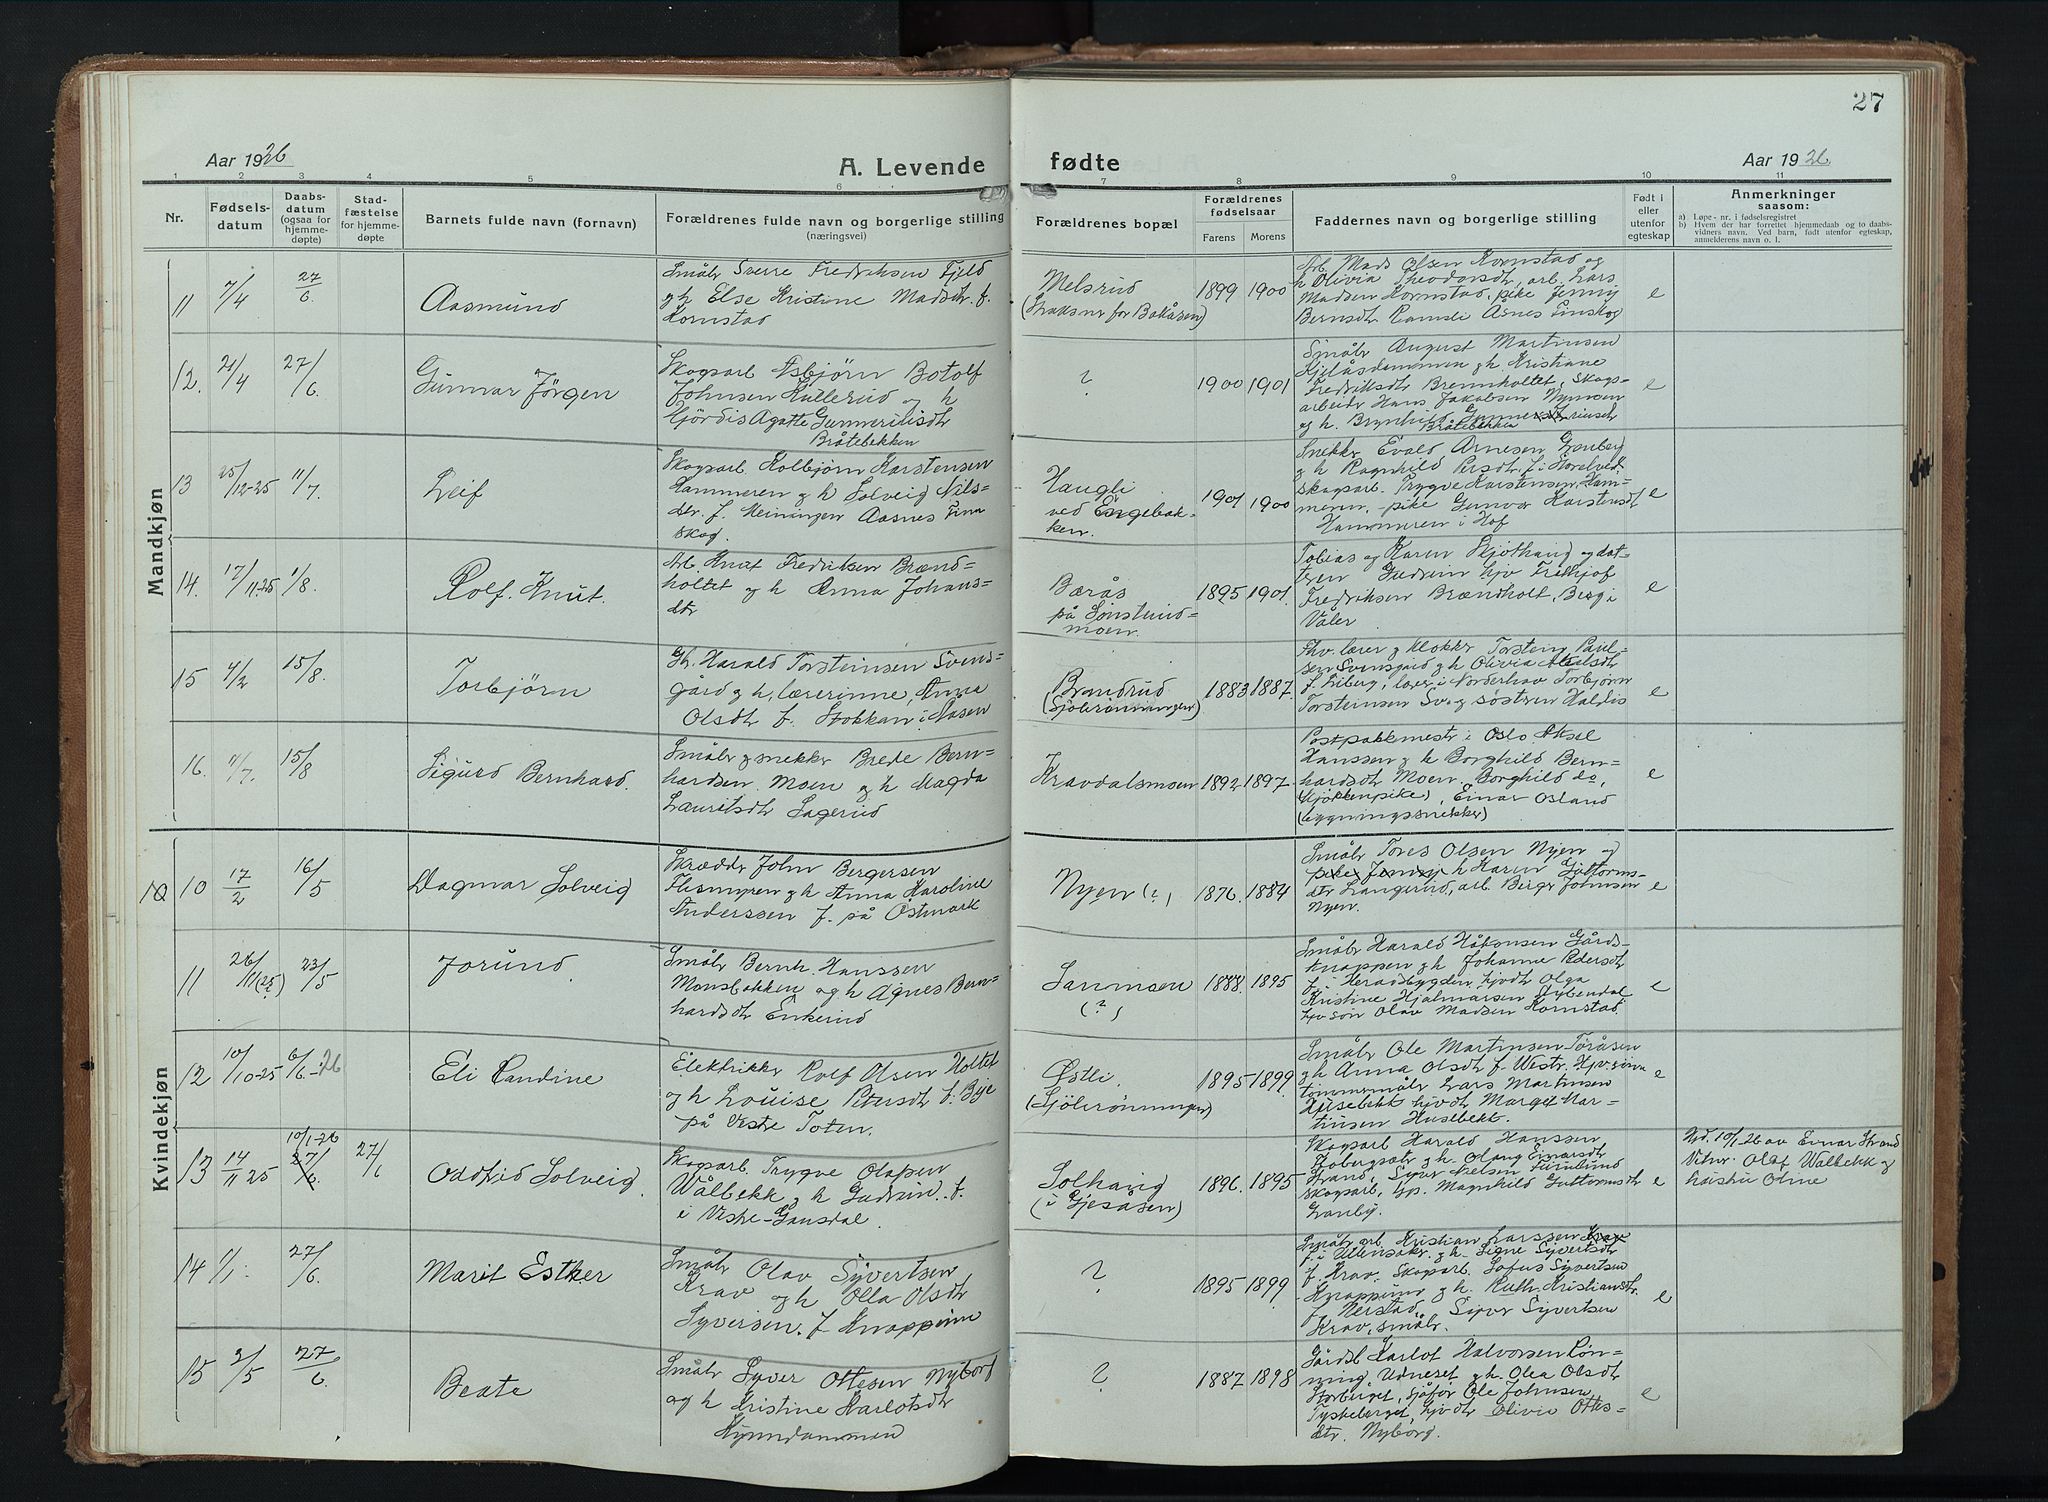 27
Aar 1926
A. Levende
fødte
Aar 1926
1 2 3 4 5 6 7 8 9 10 11
Nr.
Fødsels-
datum
Daabs-
datum
(ogsaa for
hjemme-
døpte)
Stad-
fæstelse
for hjemme-
døpte
Barnets fulde navn (fornavn)
Forældrenes fulde navn og borgerlige stilling
(næringsvei)
Forældrenes bopæl
Forældrenes
fødselsaar
Farens
Morens
Faddernes navn og borgerlige stilling
Født i
eller
utenfor
egteskap
Anmerkninger
saasom:
a) Løpe-nr. i fødselsregistret
b) Hvem der har forrettet hjemmedaab og to daabs-
vidners navn. Ved barn, født utenfor egteskap,
anmelderens navn o. l.
Mandkjøn
11
7/4
27/6
Aasmund
Småbr Sverre Fredriksen Fjeld
og h Else Kristine Madsdtr. f.
Kornstad
Melsrud
1899
1900
Arb. Mads Olsen Kornstad og
h Olivia Theodorsdtr, arb. Lars
Madsen Kornstad, pike Jenny
Berntsdtr Åsnes Finskog
e
12.
21/4
27/6
Gunnar Jörgen
Skogsarb Asbjörn Botolf
Johnsen Kullerud og h
Hjördis Agatte
Bråtebekken
?
1900
1901
Småbr August Martinsen
Kjelåsdammen og h Kristiane
Fredriksdtr Brennholtet, Skogs-
arbeider Hans Jakobsen Nymoen
og h. Brynhild
Bråtebekken
e
13
25/12-25
11/7
Leif
Skogsarb Kolbjörn Karstensen
Hammeren og h Solveig Nils-
dtr. f. Meiningen Aasnes Finn
skog.
Haugli
ved Engebak-
ken.
1901
1900
Snekker Evald Arnesen Granberg
og h Ragnhild Persdtr. f. i
skogsarb. Trygve Karstensen Ham-
meren, pike Gunvor Karstensdtr
Hammeren i Hof
e
14.
17/11-25
1/8.
Rolf. Knut.
Arb. Knut Fredriksen Brænd-
holtet og h Anna Johans-
dtr
Bærås
på
moen.
1895
1901.
Tobias og Karen Skjöthaug og dat-
teren Gudrun hjv Frithjof
Fredriksen Brændholt, Berg i
Våler
e
15
4/2
15/8.
Torbjörn
Harald Torsteinsen Svens-
gård og h, lærerinne, Anna
Olsdtr f. Stokkan i Aasen
Brandrud
(Sjölirönningen)
1883
1887.
lærer og klokker Torstein Paul-
sen Svensgård og h Olivia
f. Liberg, lærer i Norderhov Torbjörn
Torsteinsen Sv. og søstren Haldis
e
16.
11/7.
15/8
Sigurd Bernhard.
Småbr og snekker Brede Bern-
hardsen Moen og h Magda
Lauritsdtr Lagerud
Kravdalsmoen
1892
1897
Postpakkmestr i Oslo Aksel
Hanssen og h Borghild Bern-
hardsdtr Moen. Borghild do,
(kjökkenpike), Einar Osland
(bygningssnekker)
e
Kvindekjøn
10
10
17/2
16/5
Dagmar Solveig
Skrædder John Bergersen
Flismyren og h Anna Karoline
Anderssen f. på Östmark
Nyen (?)
1876.
1884
Småbr Tores Olsen Nyen og
h Karen Guttorms-
dtr Langerud, arb Berger Johnsen
Nyen.
e
11
26/11(25?)
23/5
Jorund.
Småbr Bernh. Hanssen
Monsbakken og h Agnes Bern-
hardsdtr Enkerud
(?)
1888.
1895
Småbr Harald Håkonsen Gårds-
knappen og h Johanne Pedersdtr
f. i Heradsbygden, hjvdtr Olga
Kristine Hjalmarsen Stybendal
hjv sön Olav Madsen Kornstad.
e
12
10/10-25
6/6-26
Eli Randine
Elektrikker Rolf Olsen Holtet
og h Louise Petersdtr f. Bye
på Vestre Toten.
Østli.
(Sjölirönningen)
1895
1899
Småbr Ole Martinsen Töråsen
og h Anna Olsdtr f. Westr,
tømmermåler Lars Martinsen
Husebekk hjvdtr Margit Mar-
tinsen Husebekk.
e
13
14/11 25
10/1-26
27/6
27/6
Oddfrid Solveig
Skogsarb Trygve Olafsen
Wålbekk og h Gudrun f.
i Vestre-Gausdal.
Solhaug
(i Gjesåsen)
1896.
1895
Skogsarb Harald Hanssen
og h Olaug Einarsdtr
Strand, Syver Nielsen
skogsarb, Magnhild Guttormsdtr
Granby.
e
Hjd. 10/1-26 av Einar Strand
Vitner Olaf Walbekk og
14
1/1.
27/6
Marit Esther
Småbr Olav Syvertsen
Krav og h Olla Olsdtr
Syversen. f Knappinn
?
1895
1899
Småbr arb. Kristian Larssen
f. i Ullensaker og h. Signe Syvertsdtr
f. Krav. Skogsarb. Lofus Syvertsen
Knappinn og h Ruth Kristiansdtr.
f Nerstad, Syver Syvertsen
Krav, småbr.
e
15
2/5
27/6
Beate
Småbr Syver Ottesen Nyborg
og h Kristine Karlotsdtr
Kynndammen
?
1887
1898
Gårdsb Karlot Halvorsen Rön-
ning, Udneset og h. Olea Olsdtr
Storberget, sjåför Ole Johnsen
Tyskeberget, hjvdtr Olivia Ottes-
dtr. Nyborg.
e